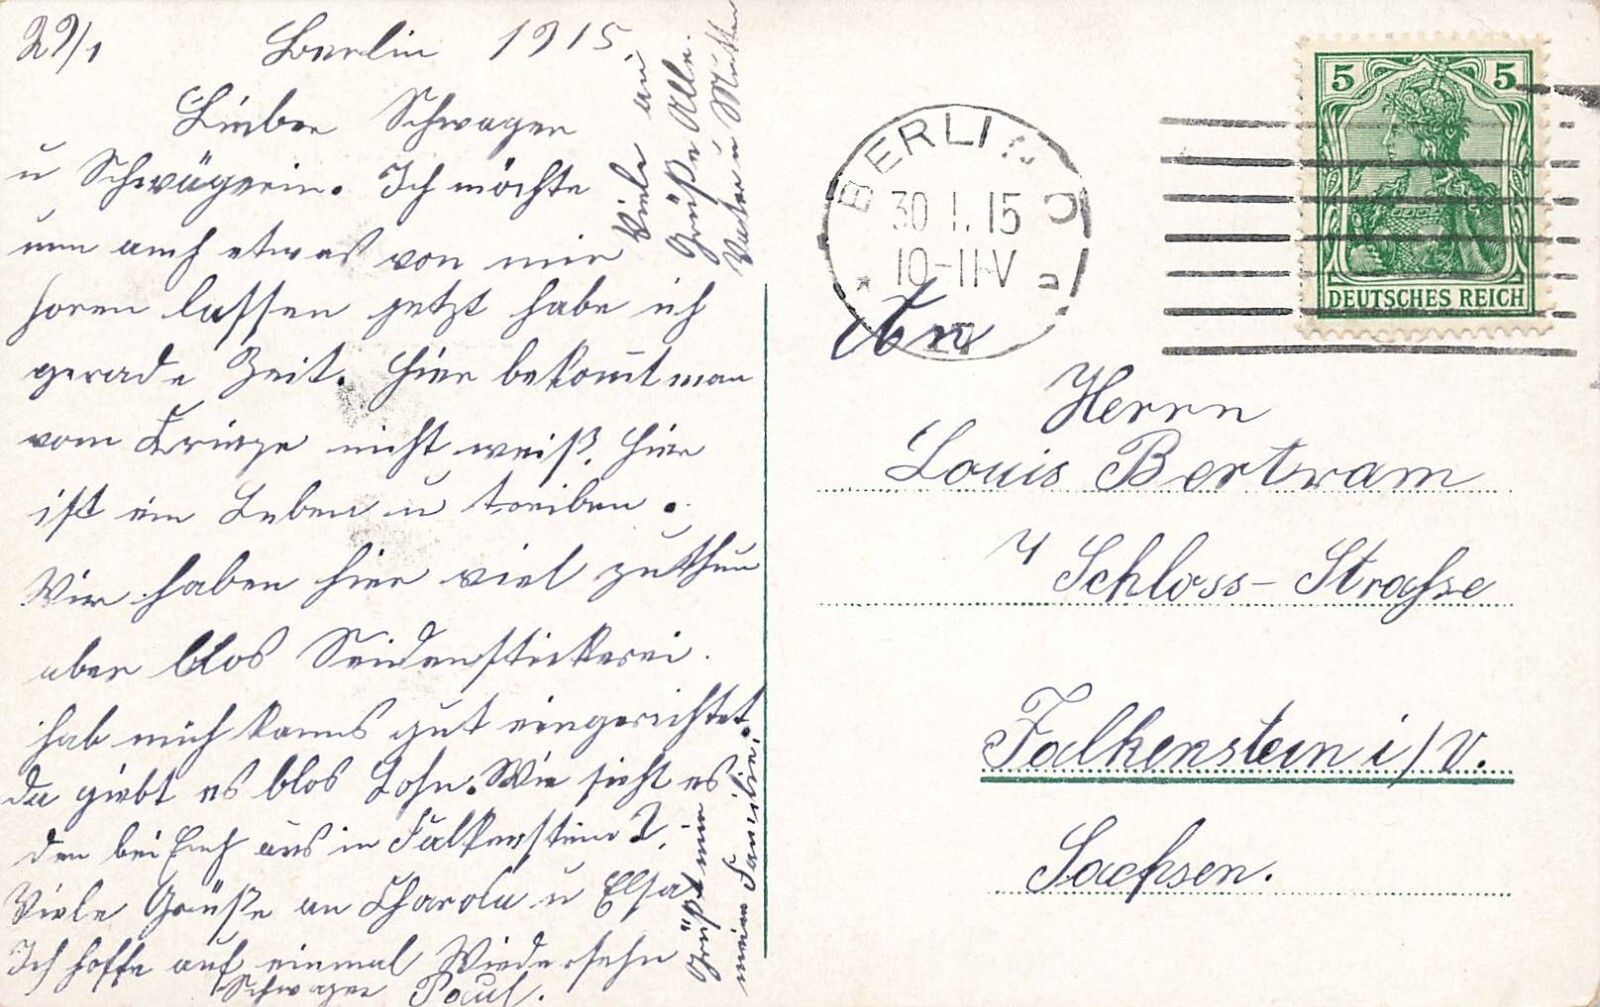 29/1 Berlin 1915.
Lieber Schwager
u Schwägerin. Ich möchte
nun auch etwas von mir
hören lassen jetzt habe ich
gerade Zeit. Hier bekom̅t man
vom Kriege nicht weiß. Hier
ist ein Leben u treiben.
Wir haben hier viel zuthun
aber blos Seidenstickerei.
hab mich kanns gut eingerichtet.
da giebt es blos Lohn. Wie sieht es
den bei Euch aus in Falkenstein?
Viele Grüße an u Elsa
Ich hoffe auf einmal Wiedersehn
Schwager Paul.
Grüßt mir
meine Familie.
Viele an
Grüße Alle.
Vater u Mutter
BERLIN C
30.1.15
10-11 V
* 2 a
5 5
DEUTSCHES REICH
An
Herrn
Louis Bertram
4 Schloss-Straße
Falkenstein i/V.
Sachsen.